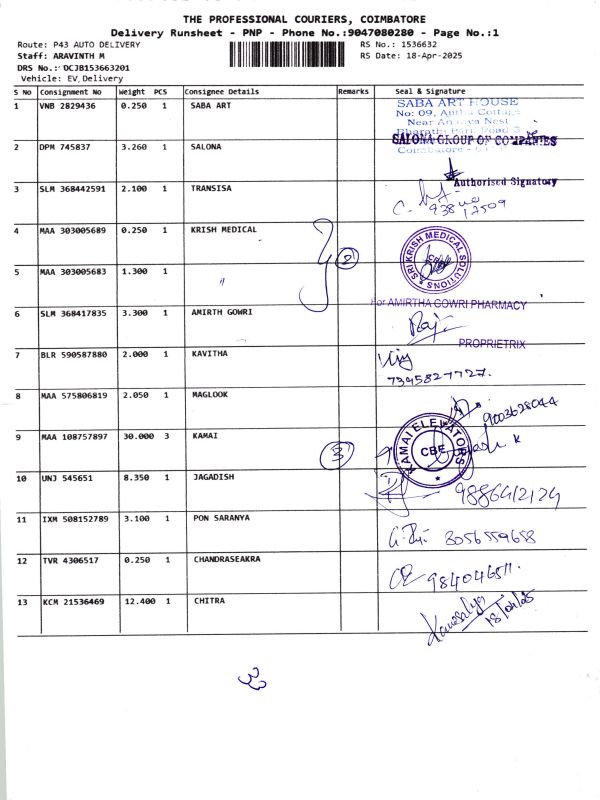 THE PROFESSIONAL COURIERS, COIMBATORE
Delivery Runsheet - PNP - Phone No.:9047080280 - Page No.:1
Route: P43 AUTO DELIVERY RS No.: 1536632
Staff: ARAVINTH M RS Date: 18-Apr-2025
DRS No.: DCJB153663201
Vehicle: EV,Delivery
S No Consignment No Weight PCS Consignee Details Remarks Seal & Signature
1 VNB 2829436 0.250 1 SABA ART
SABA ART HOUSE
No: 09,
Near Ananya Nest
Coimbatore -
2 DPM 745837 3.260 1 SALONA
SALONA GROUP OF COMPANIES
Authorised Signatory
3 SLM 368442591 2.100 1 TRANSISA
4 MAA 303005689 0.250 1 KRISH MEDICAL
2
SRI KRISH MEDICAL SOLUTIONS
CBE
5 MAA 303005683 1.300 1 "
6 SLM 368417835 3.300 1 AMIRTH GOWRI
For AMIRTHA GOWRI PHARMACY
PROPRIETRIX
7 BLR 590587880 2.000 1 KAVITHA
7395827727.
8 MAA 575806819 2.050 1 MAGLOOK
9003628044
9 MAA 108757897 30.000 3 KAMAI
3
KAMAI ELEVATORS
CBE
10 UNJ 545651 8.350 1 JAGADISH
9886412124
11 IXM 508152789 3.100 1 PON SARANYA
3056559658
12 TVR 4306517 0.250 1 CHANDRASEAKRA
13 KCM 21536469 12.400 1 CHITRA
18/04/25